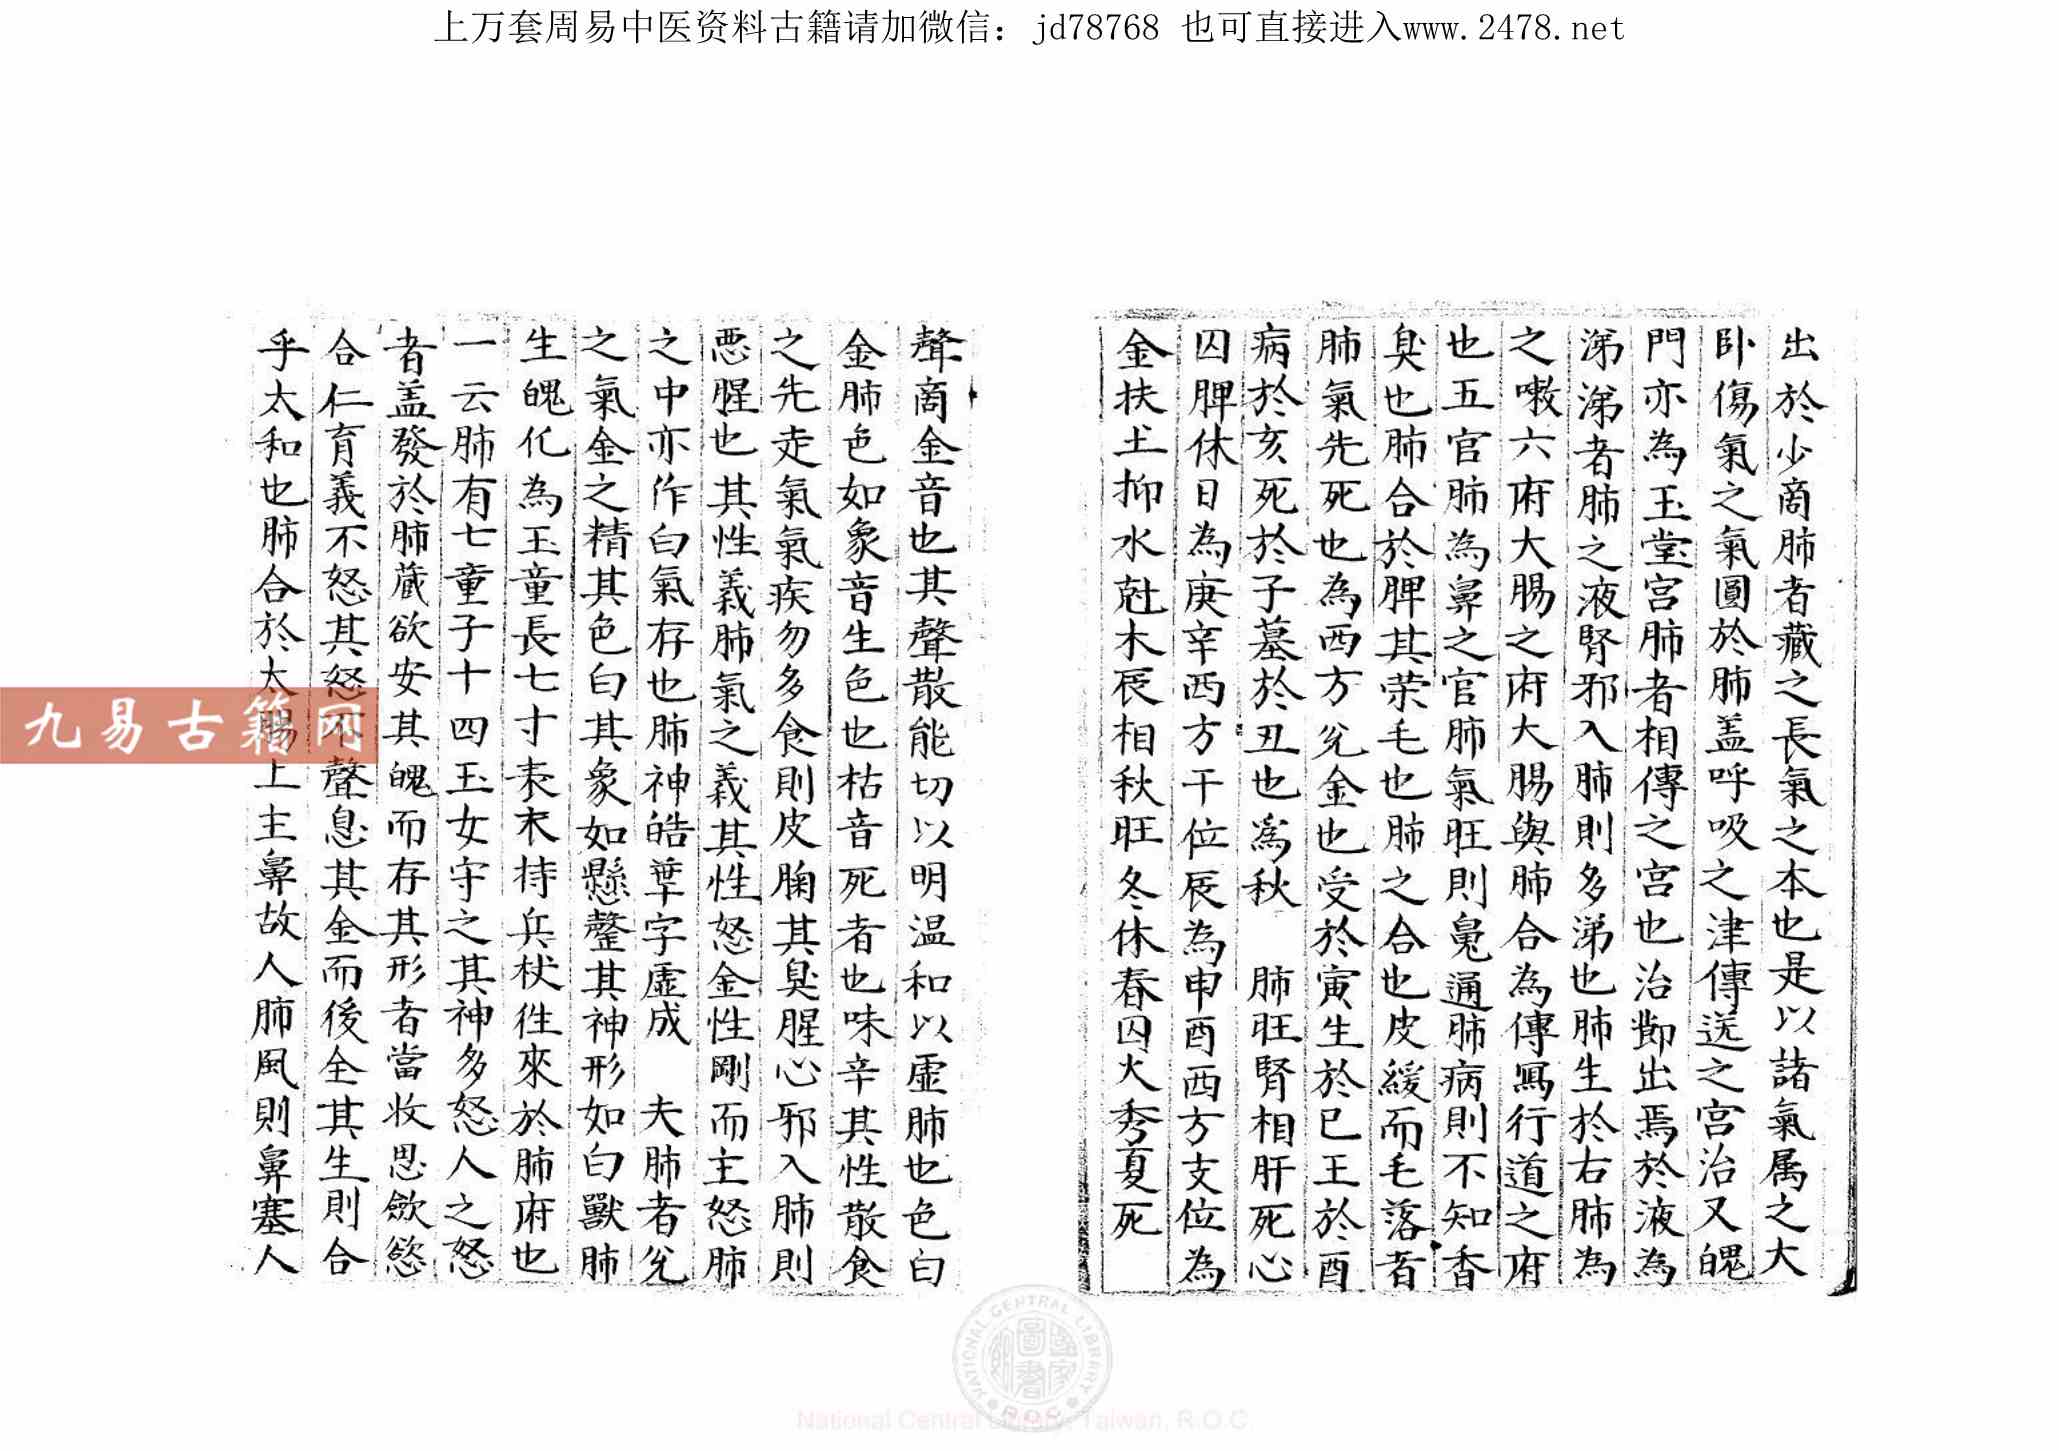 上万套周易中医资料古籍请加微信：jd78768 也可直接进入www.2478.net
出於少商肺者藏之長氣之本也是以諸氣属之大
卧傷氣之氣圓於肺盖呼吸之津傳送之宫治又魄
門亦為玉堂宫肺者相傳之宫也治節出焉於液為
涕涕者肺之液腎邪入肺則多涕也肺生於右肺為
之嗽六府大腸之府大腸與肺合為傳冩行道之府
也五官肺為鼻之官肺氣旺則鼻通肺病則不知香
臭也肺合於脾其荣毛也肺之合也皮緩而毛落者
肺氣先死也為西方兊金也受於寅生於巳王於酉
病於亥死於子墓於丑也為秋 肺旺腎相肝死心
囚脾休日為庚辛西方干位辰為申酉西方支位為
金扶土抑水尅木辰相秋旺冬休春囚火秀夏死
聲商金音也其聲散能切以明温和以虚肺也色白
金肺色如象音生色也枯音死者也味辛其性散食
之先走氣氣疾勿多食則皮胸其臭腥心邪入肺則
悪腥也其性義肺氣之義其性怒金性剛而主怒肺
之中亦作白氣存也肺神皓華字虚成 夫肺者兊
之氣金之精其色白其象如懸罄其神形如白獸肺
生魄化為玉童長七寸素衣持兵杖徃來於肺府也
一云肺有七童子十四玉女守之其神多怒人之怒
者盖發於肺藏欲安其魄而存其形者當收思歛慾
合仁育義不怒其怒不聲息其金而後全其生則合
乎太和也肺合於太腸上主鼻故人肺風則鼻塞人
九易古籍网
NATIONAL CENTRAL LIBRARY
R.O.C
國家圖書館
National Central Library, Taiwan, R.O.C